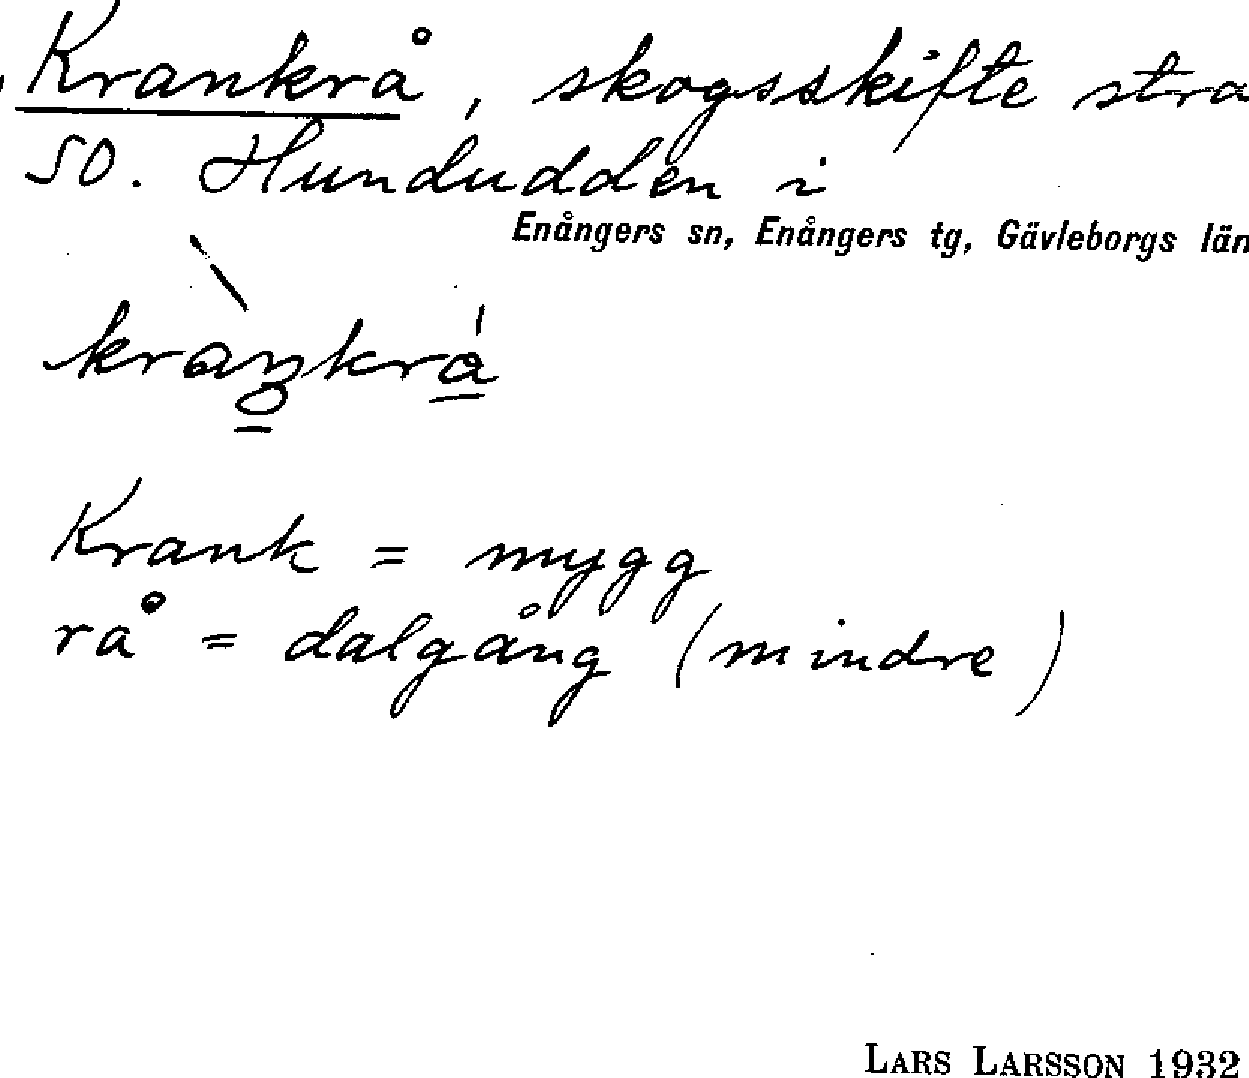 Krankrå, skogsskifte stra
SO. Hundudden i
Enångers sn, Enångers tg, Gävleborgs län
Krank = mygg
rå = dalgång (mindre)
LARS LARSSON 1932